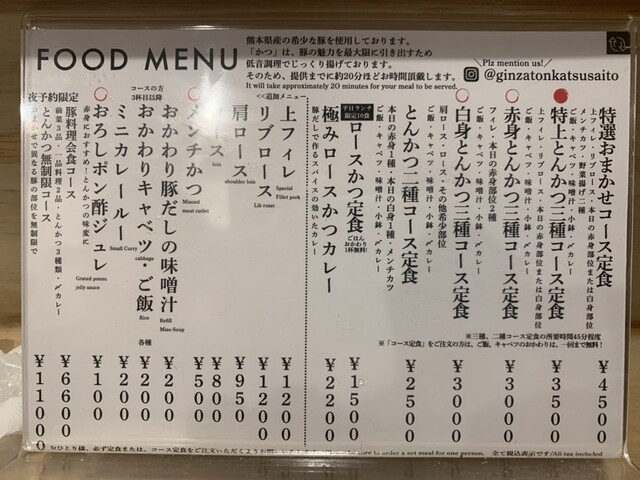 FOOD MENU
熊本県産の希少な豚を使用しております。
「かつ」は、豚の魅力を最大限に引き出すため
低音調理でじっくり揚げております。
そのため、提供までに約20分ほどお時間頂戴します。
It will take approximately 20 minutes for your meal to be served.
Plz mention us!
@ginzatonkatsusaito
特選おまかせコース定食
上フィレ・リブロース・本日の赤身部位または白身部位
メンチカツ・野菜揚げ二種
ご飯・キャベツ・味噌汁・小鉢・〆カレー
¥4500
特上とんかつ三種コース定食
上フィレ・リブロース・本日の赤身部位または白身部位
ご飯・キャベツ・味噌汁・小鉢・〆カレー
¥3500
赤身とんかつ三種コース定食
フィレ・本日の赤身部位2種
ご飯・キャベツ・味噌汁・小鉢・〆カレー
¥3000
白身とんかつ三種コース定食
肩ロース・ロース・その他希少部位
ご飯・キャベツ・味噌汁・小鉢・〆カレー
¥3000
とんかつ二種コース定食
本日の赤身1種・本日の白身1種・メンチカツ
ご飯・キャベツ・味噌汁・小鉢・〆カレー
¥2500
※三種、二種コース定食の所要時間45分程度
※「コース定食」をご注文の方は、ご飯、キャベツのおかわりは、一回まで無料!
平日ランチ
限定10食
ロースかつ定食
ごはん
おかわり
1杯無料!
¥1500
極みロースかつカレー
豚だしで作るスパイスの効いたカレー
¥2200
<<追加メニュー
上フィレ
Special
Fillet pork
¥1200
リブロース
Lib roast
¥1200
肩ロース
shoulder loin
¥950
ロース
loin
¥800
メンチかつ
Minced
meat cutlet
¥500
コースの方
3杯目以降
おかわり豚だしの味噌汁
Refill
Miso-Soup
¥200
おかわりキャベツ・ご飯
cabbage
Rice
各種
¥200
ミニカレールー
Small Curry
¥200
おろしポン酢ジュレ
赤身におすすめ!とんかつの味変に
Grated ponzu
jelly sauce
¥100
夜予約限定
豚料理会食コース
前菜3品・一品料理2品・とんかつ3種類・〆カレー
¥6600
とんかつ無制限コース
おまかせで異なる豚の部位を無制限で
¥11000
おひとり様、必ず定食または、コース定食をご注文いただくよう
order a set meal for one person.
全て税込表示です/All tax included